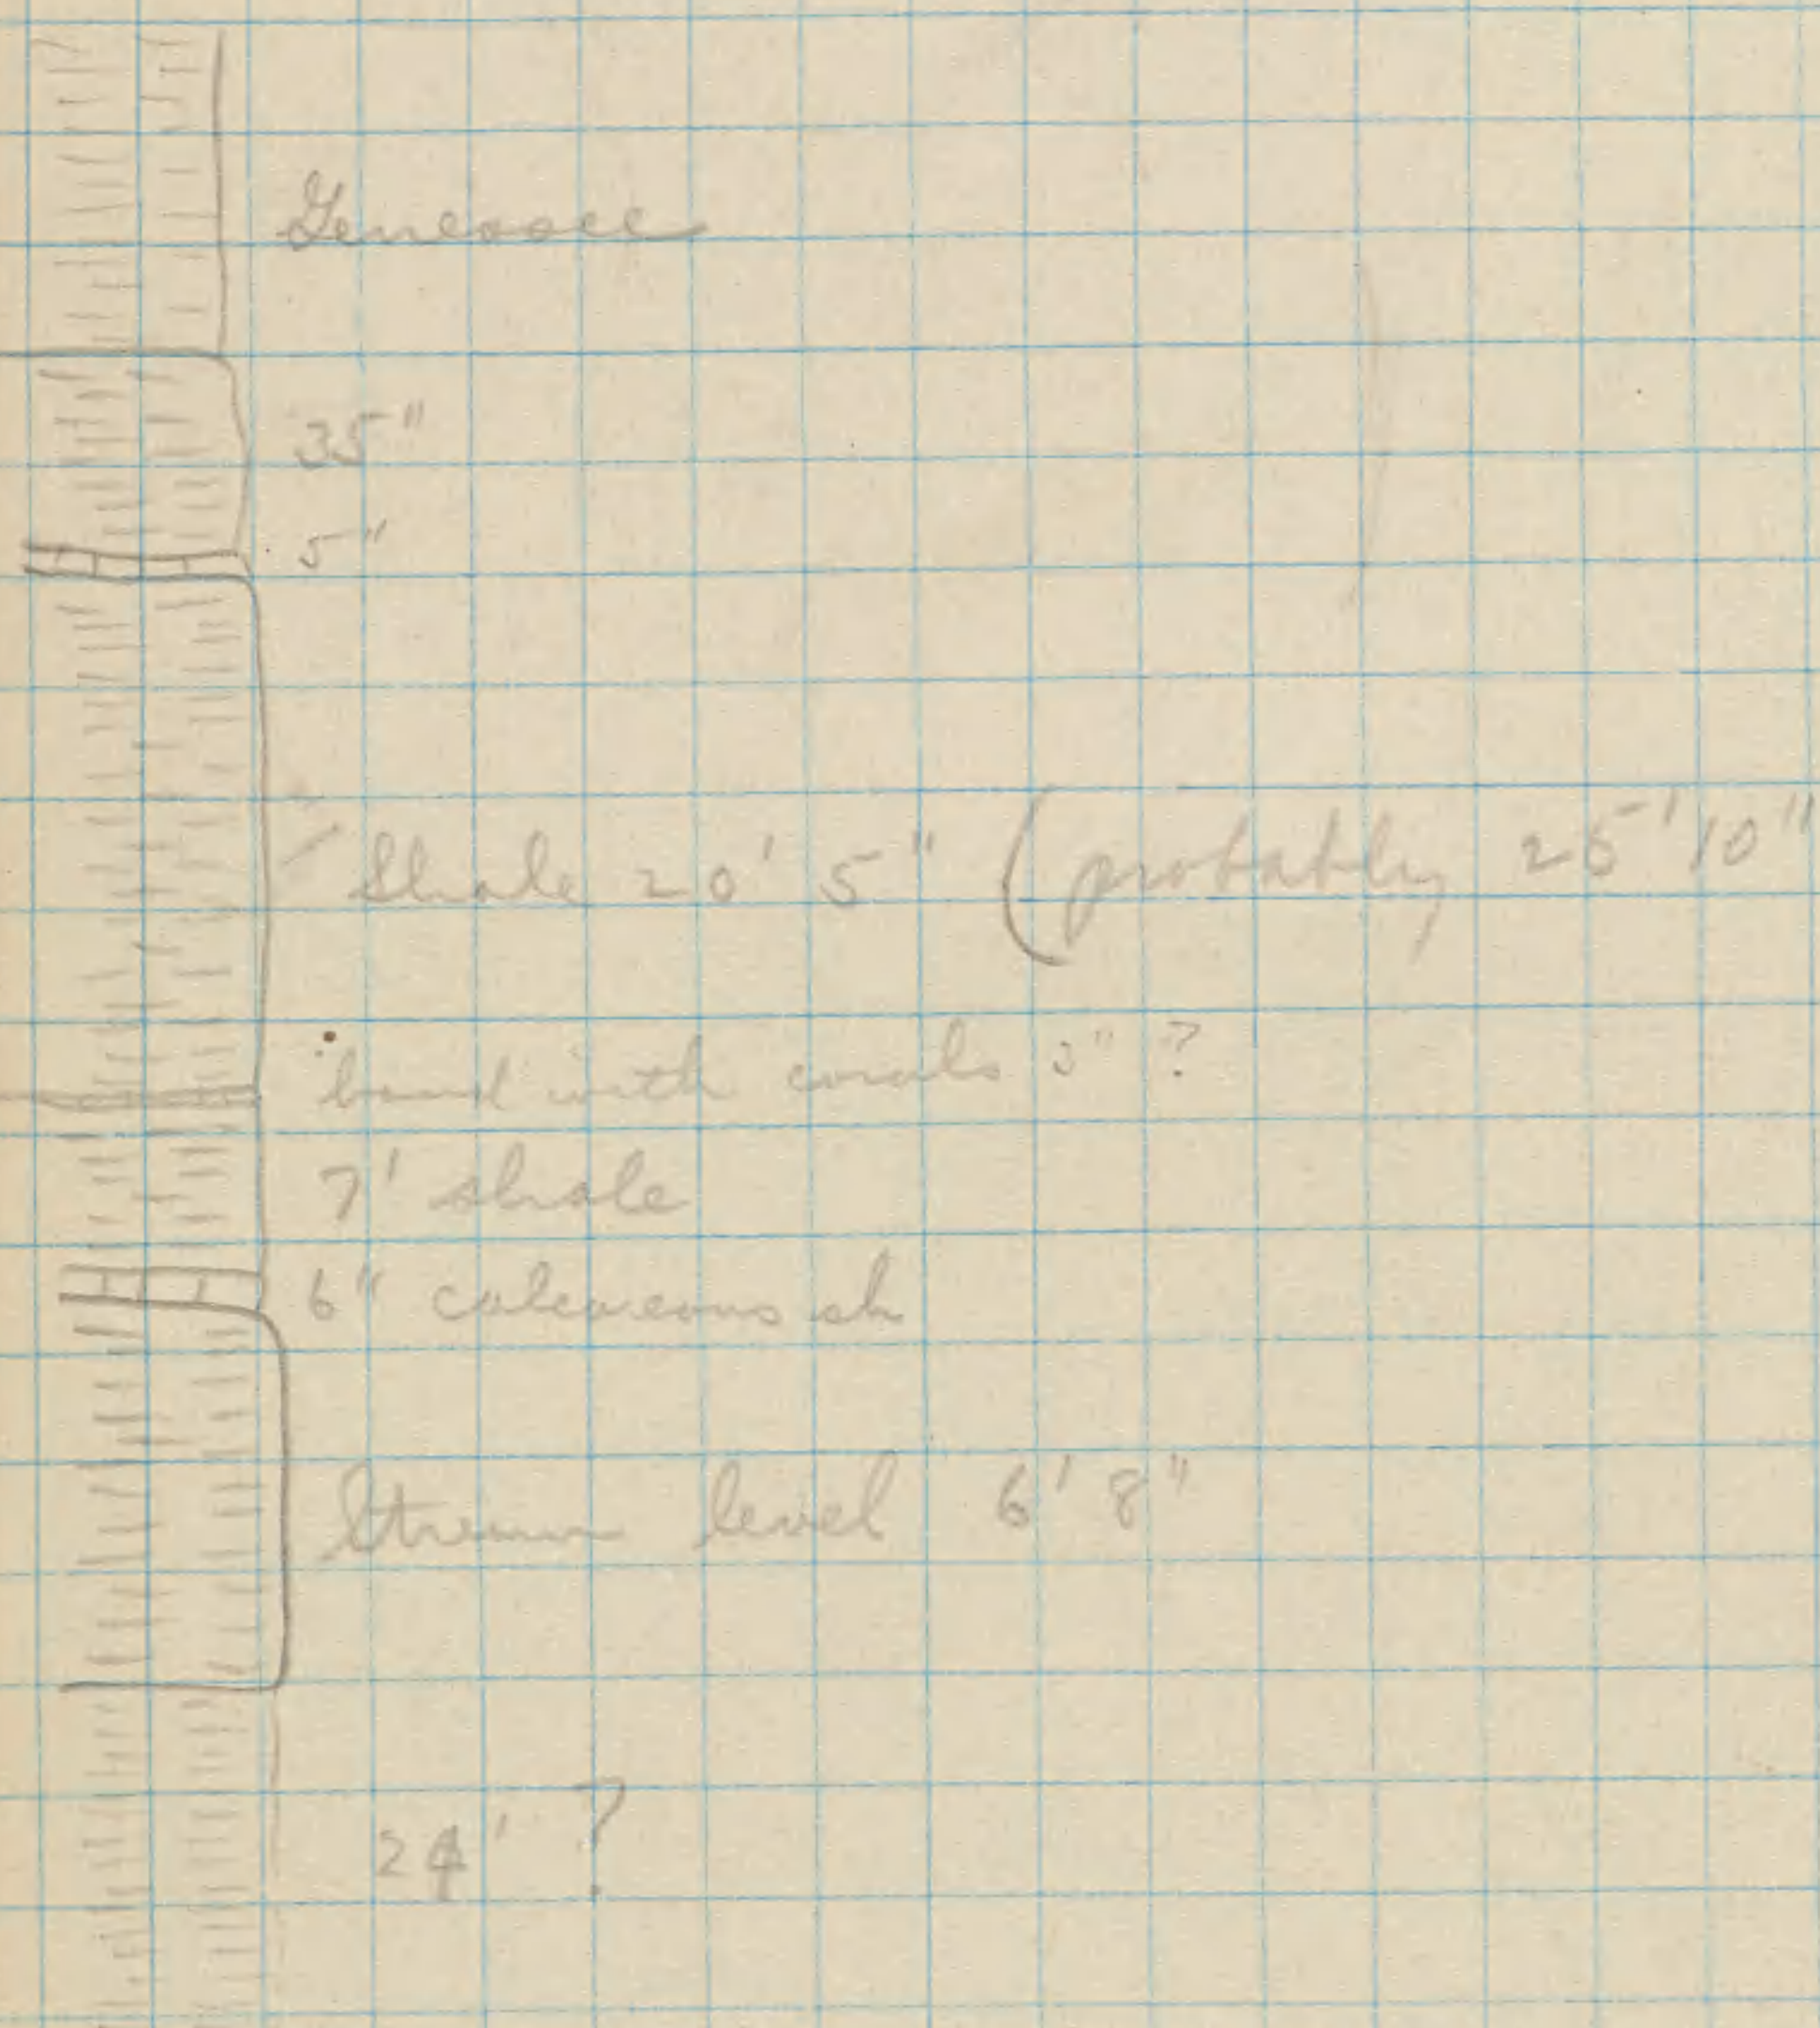 Genessee
35"
5"
Shale 20' 5" (probably 25' 10"
band with corals 3" ?
7' shale
6" calcareous sh
Stream level 6' 8"
24' ?